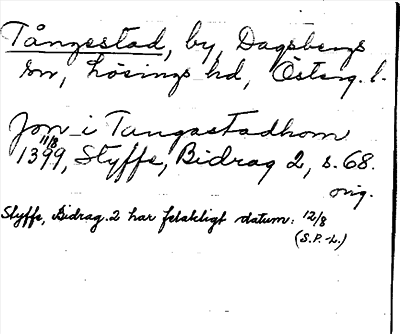 Tångestad, by, Dagsbergs
sn, Lösings hd,Österg. l.
Jon i Tangastadhom
11/8
1399, Styffe, Bidrag 2, s. 68.
orig.
Styffe, Bidrag 2 har felaktigt datum: 12/8
(S.P.-L.)